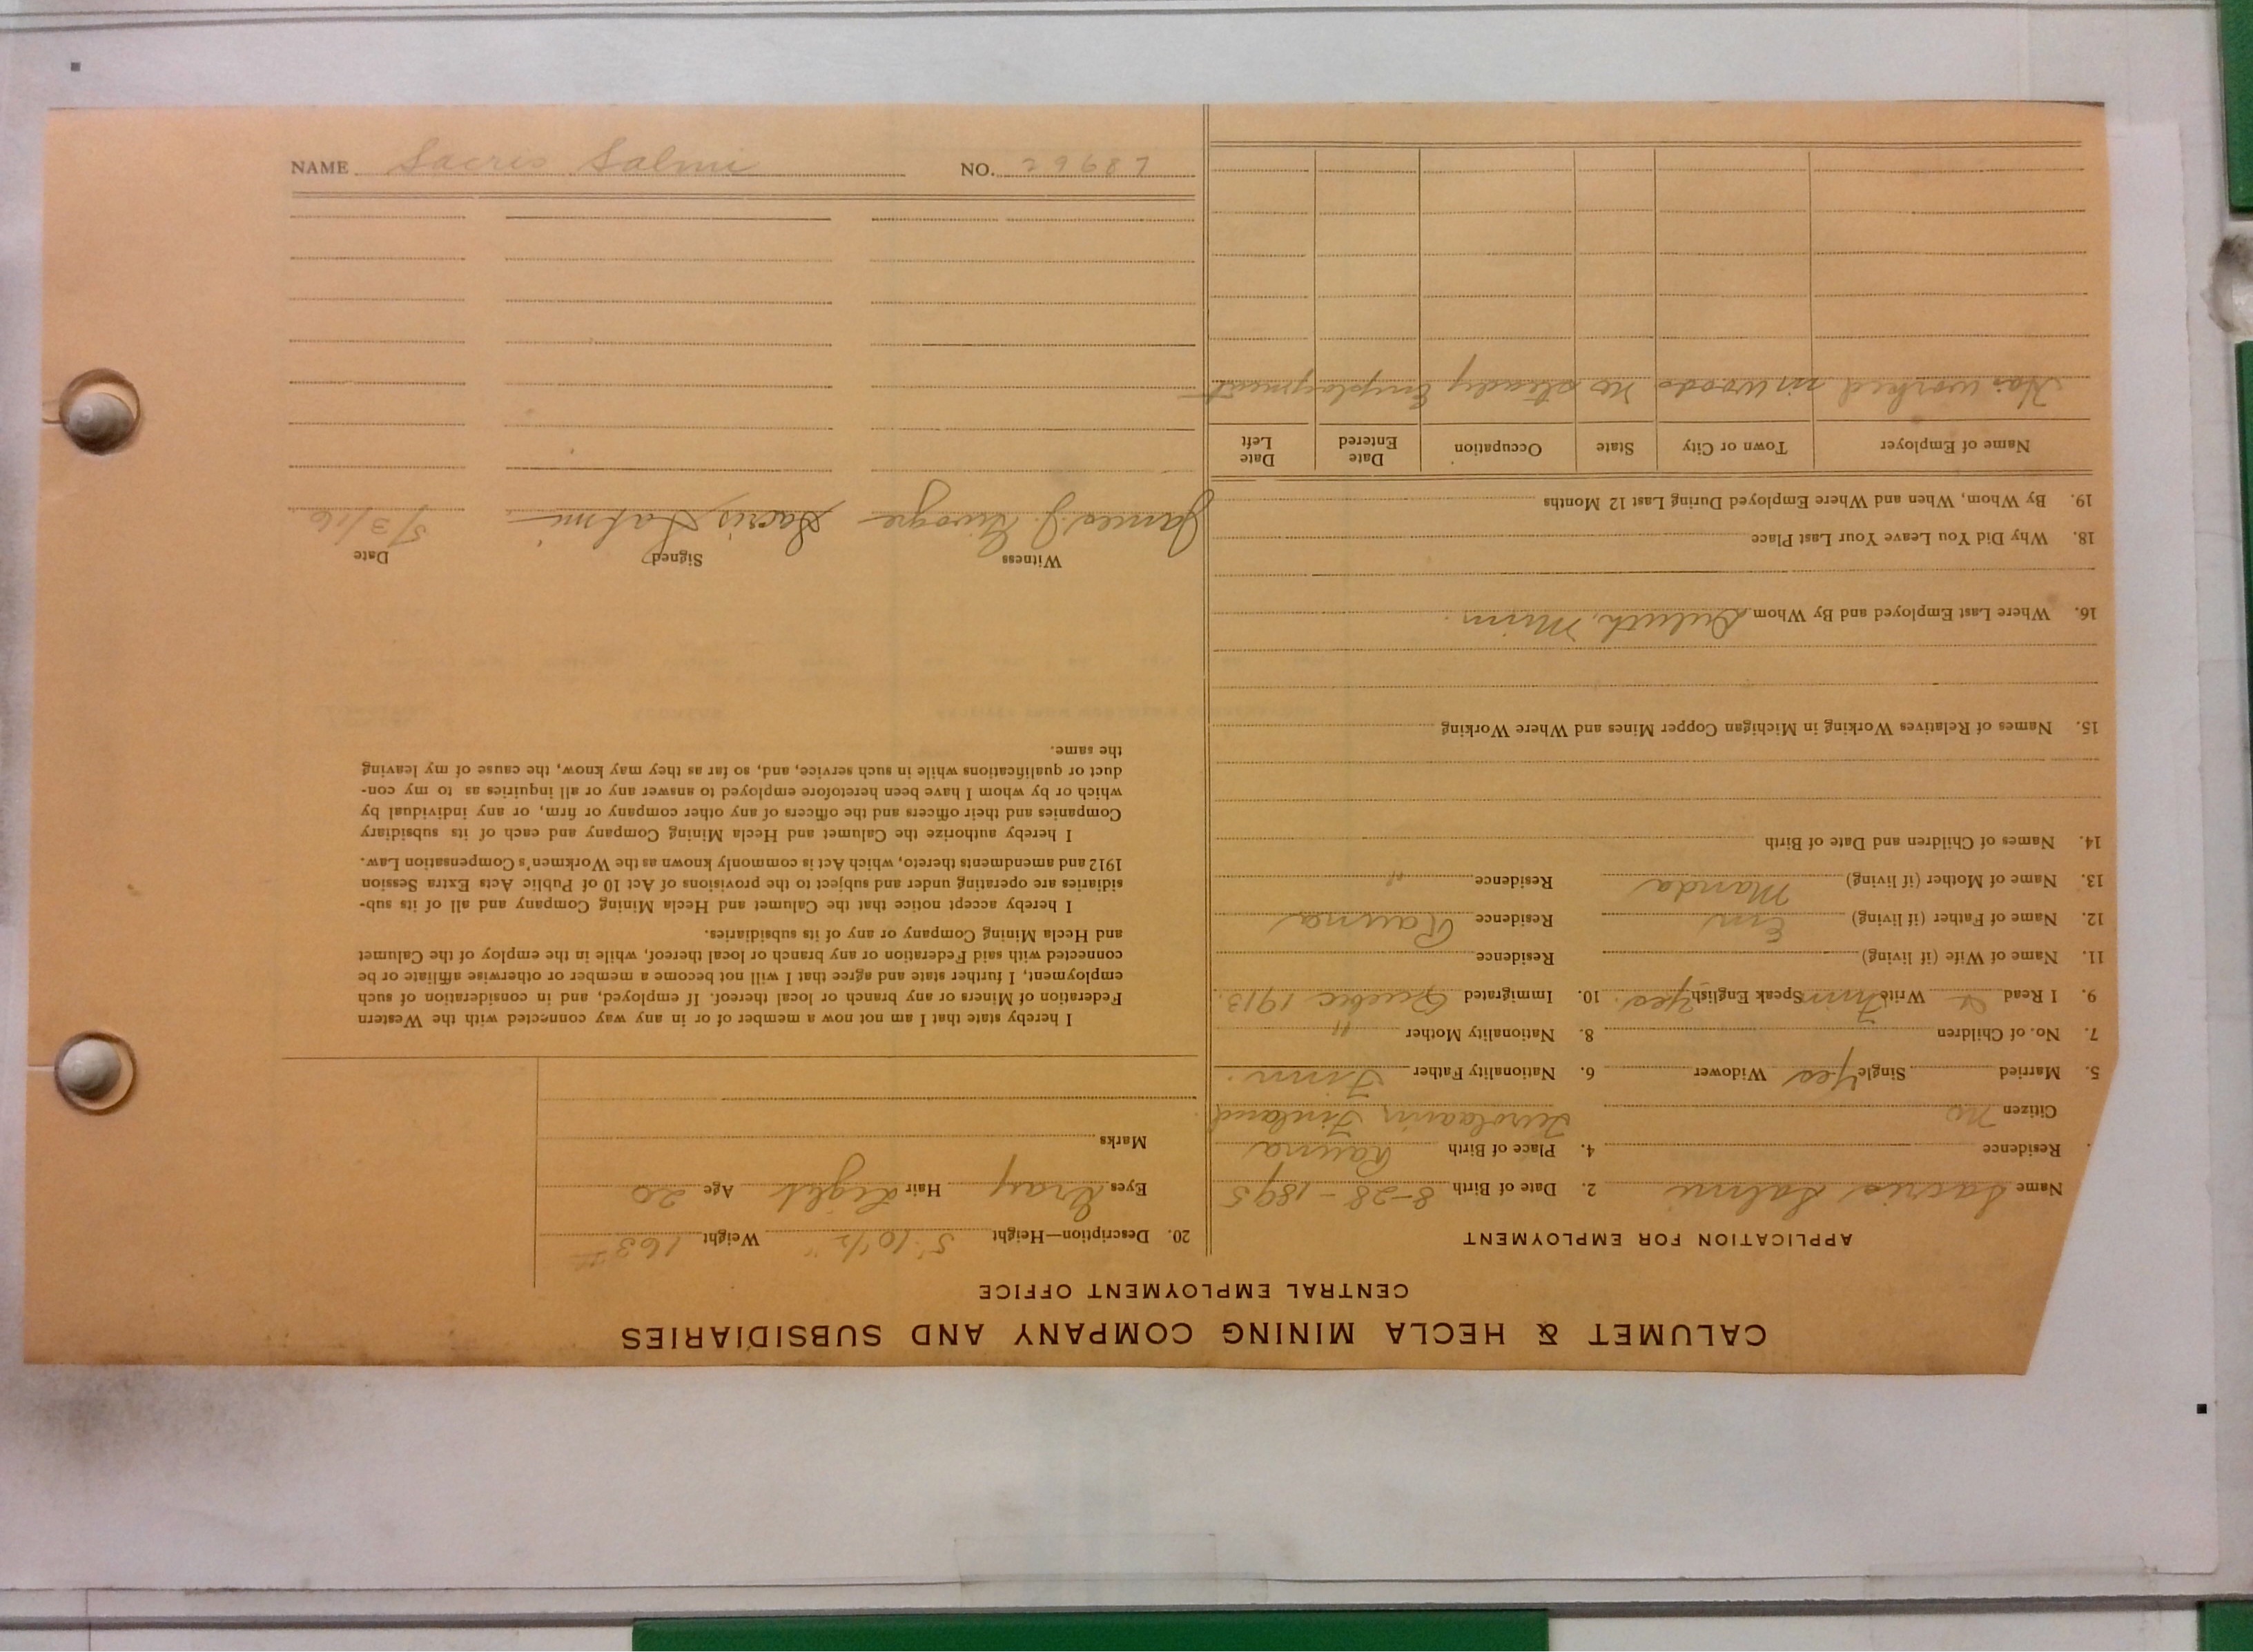 CALUMET & HECLA MINING COMPANY AND SUBSIDIARIES
CENTRAL EMPLOYMENT OFFICE
APPLICATION FOR EMPLOYMENT
Name Sacris Salmi 2. Date of Birth 8-28-1895
Residence 4. Place of Birth Rauma
Citizen no Finland
5. Married Single Yes Widower 6. Nationality Father Finn.
7. No. of Children 8. Nationality Mother "
9. I Read Write Finn Speak English Yes. 10. Immigrated Quebec 1913.
11. Name of Wife (if living) Residence
12. Name of Father (if living) Residence Rauma
13. Name of Mother (if living) Manda Residence "
14. Names of Children and Date of Birth
15. Names of Relatives Working in Michigan Copper Mines and Where Working
16. Where Last Employed and By Whom Duluth, Minn.
18. Why Did You Leave Your Last Place
19. By Whom, When and Where Employed During Last 12 Months
Name of Employer Town or City State Occupation Date Entered Date Left
Has worked in woods no steady Employment
20. Description—Height 5' 10 1/2" Weight 163#
Eyes Gray Hair Light Age 20
Marks
I hereby state that I am not now a member of or in any way connected with the Western
Federation of Miners or any branch or local thereof. If employed, and in consideration of such
employment, I further state and agree that I will not become a member or otherwise affiliate or be
connected with said Federation or any branch or local thereof, while in the employ of the Calumet
and Hecla Mining Company or any of its subsidiaries.
I hereby accept notice that the Calumet and Hecla Mining Company and all of its sub-
sidiaries are operating under and subject to the provisions of Act 10 of Public Acts Extra Session
1912 and amendments thereto, which Act is commonly known as the Workmen's Compensation Law.
I hereby authorize the Calumet and Hecla Mining Company and each of its subsidiary
Companies and their officers and the officers of any other company or firm, or any individual by
which or by whom I have been heretofore employed to answer any or all inquiries as to my con-
duct or qualifications while in such service, and, so far as they may know, the cause of my leaving
the same.
Witness Signed Date
James J. Sacris Salmi 5/3/16
NAME Sacris Salmi NO. 29687